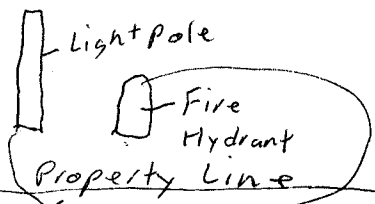 Light Pole
Fire
Hydrant
Property Line